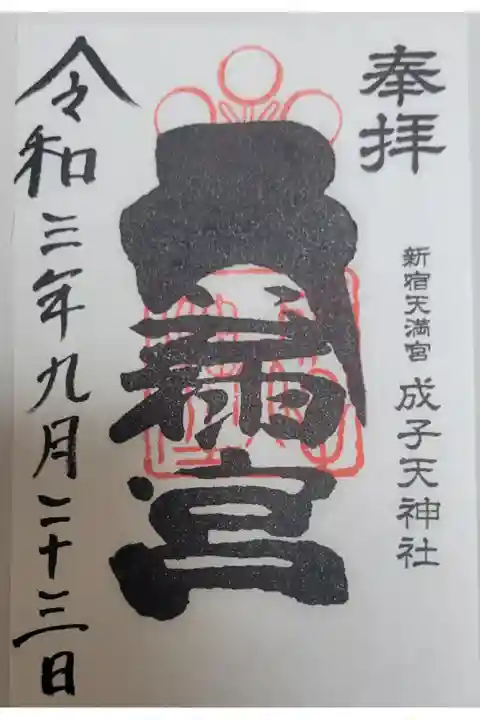 奉拝
新宿天満宮 成子天神社
宮
令和三年九月二十三日